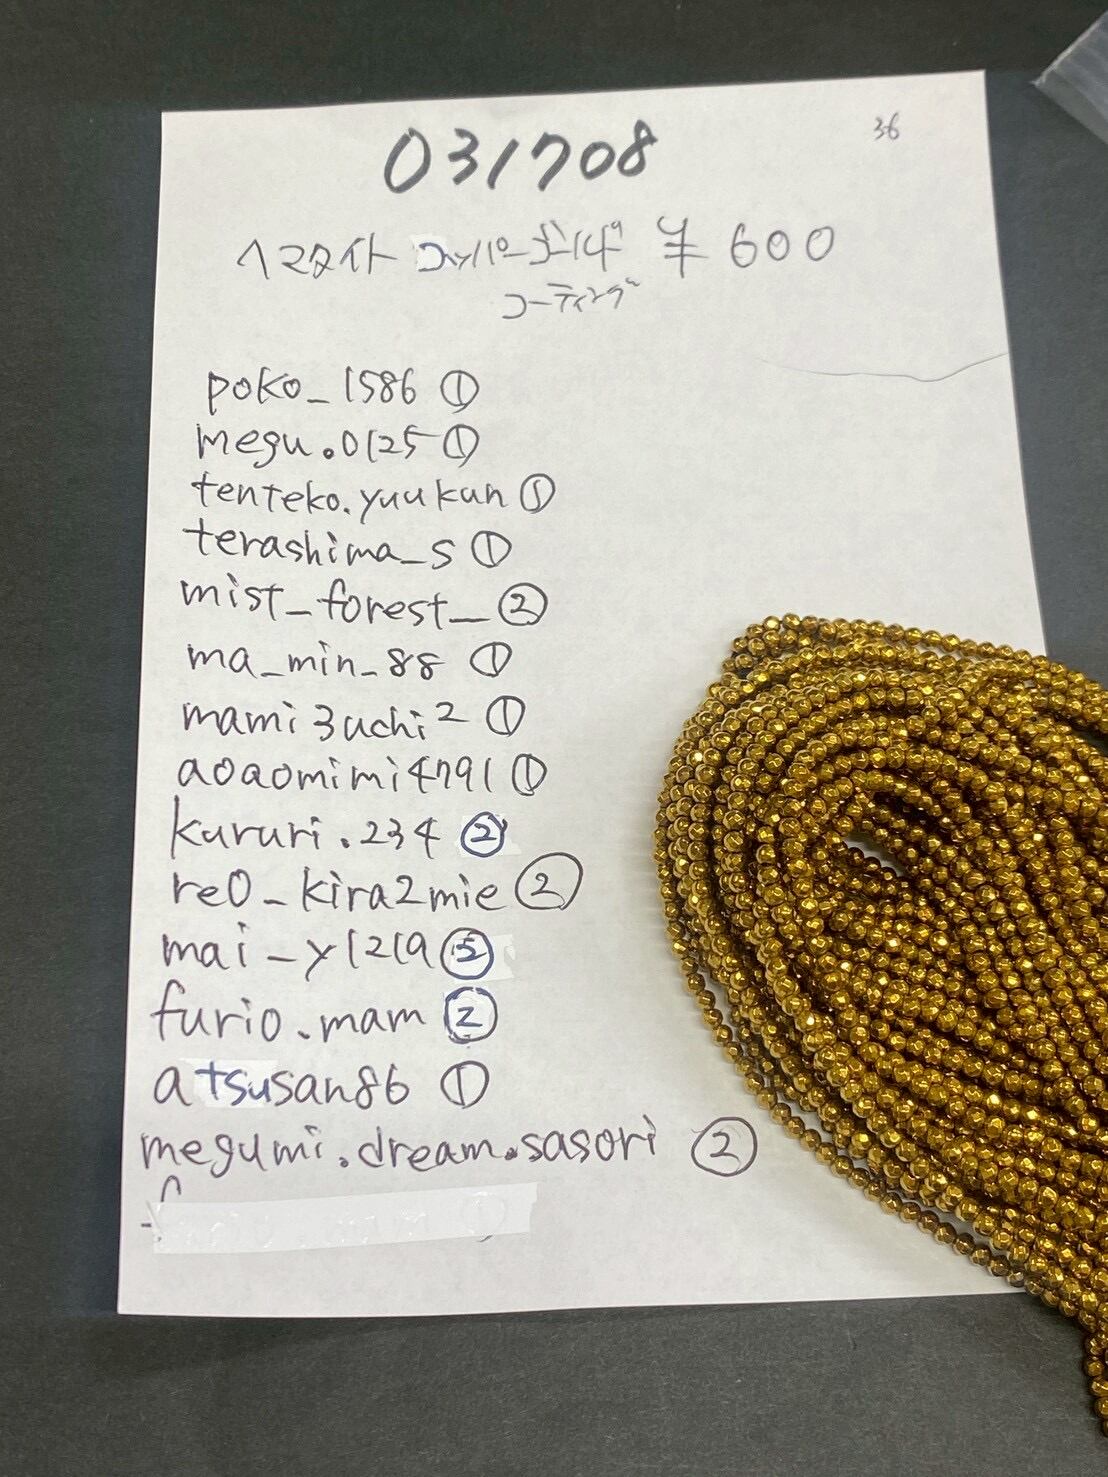 36
031708
ヘマタイト コッパーゴールド ¥600
コーティング
poko_1586 ①
megu.0125 ①
tenteko.yuukun ①
terashima_s ①
mist_forest_ ②
ma_min_88 ①
mami3uchi2 ①
aoaomimi4791 ①
kururi.234 ②
re0_kira2mie ②
mai_y1219 ⑤
furio.mam ②
atsusan86 ①
megumi.dream.sasori ②